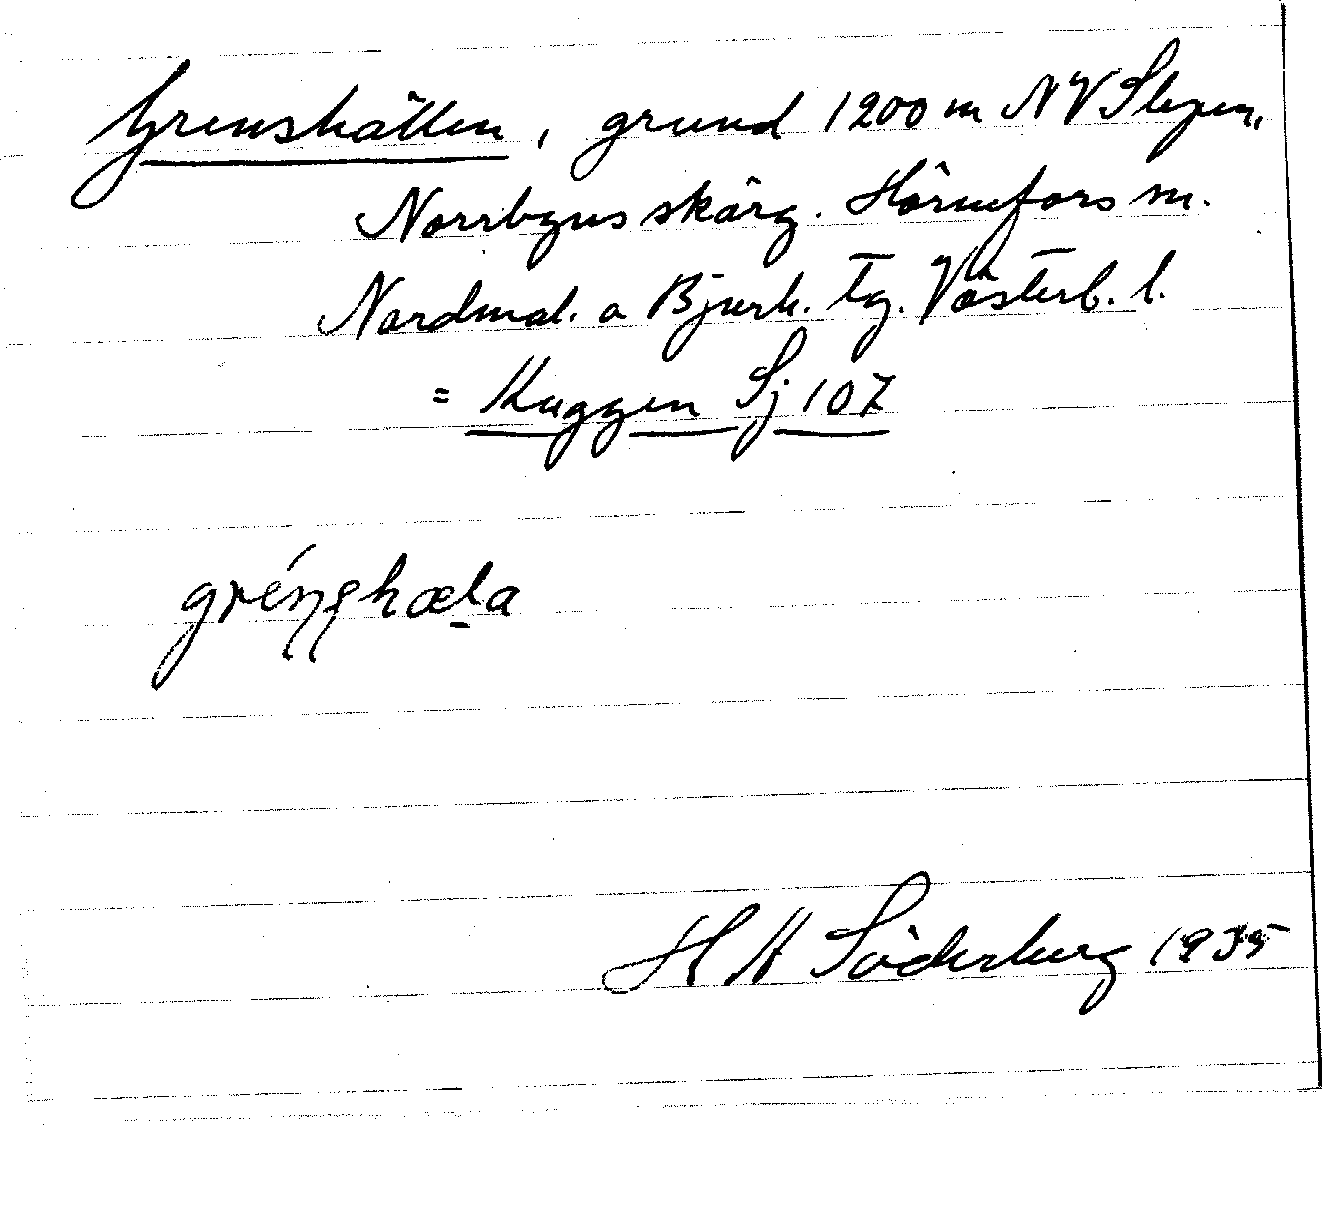 Grenshällen, grund 1200 m NV Slepen,
Norrbyns skärg. Hörnefors sn.
Nordmal. o Bjurh. tg. Västerb. l.
= Kuggen Sj 107
H H Söderberg 1935